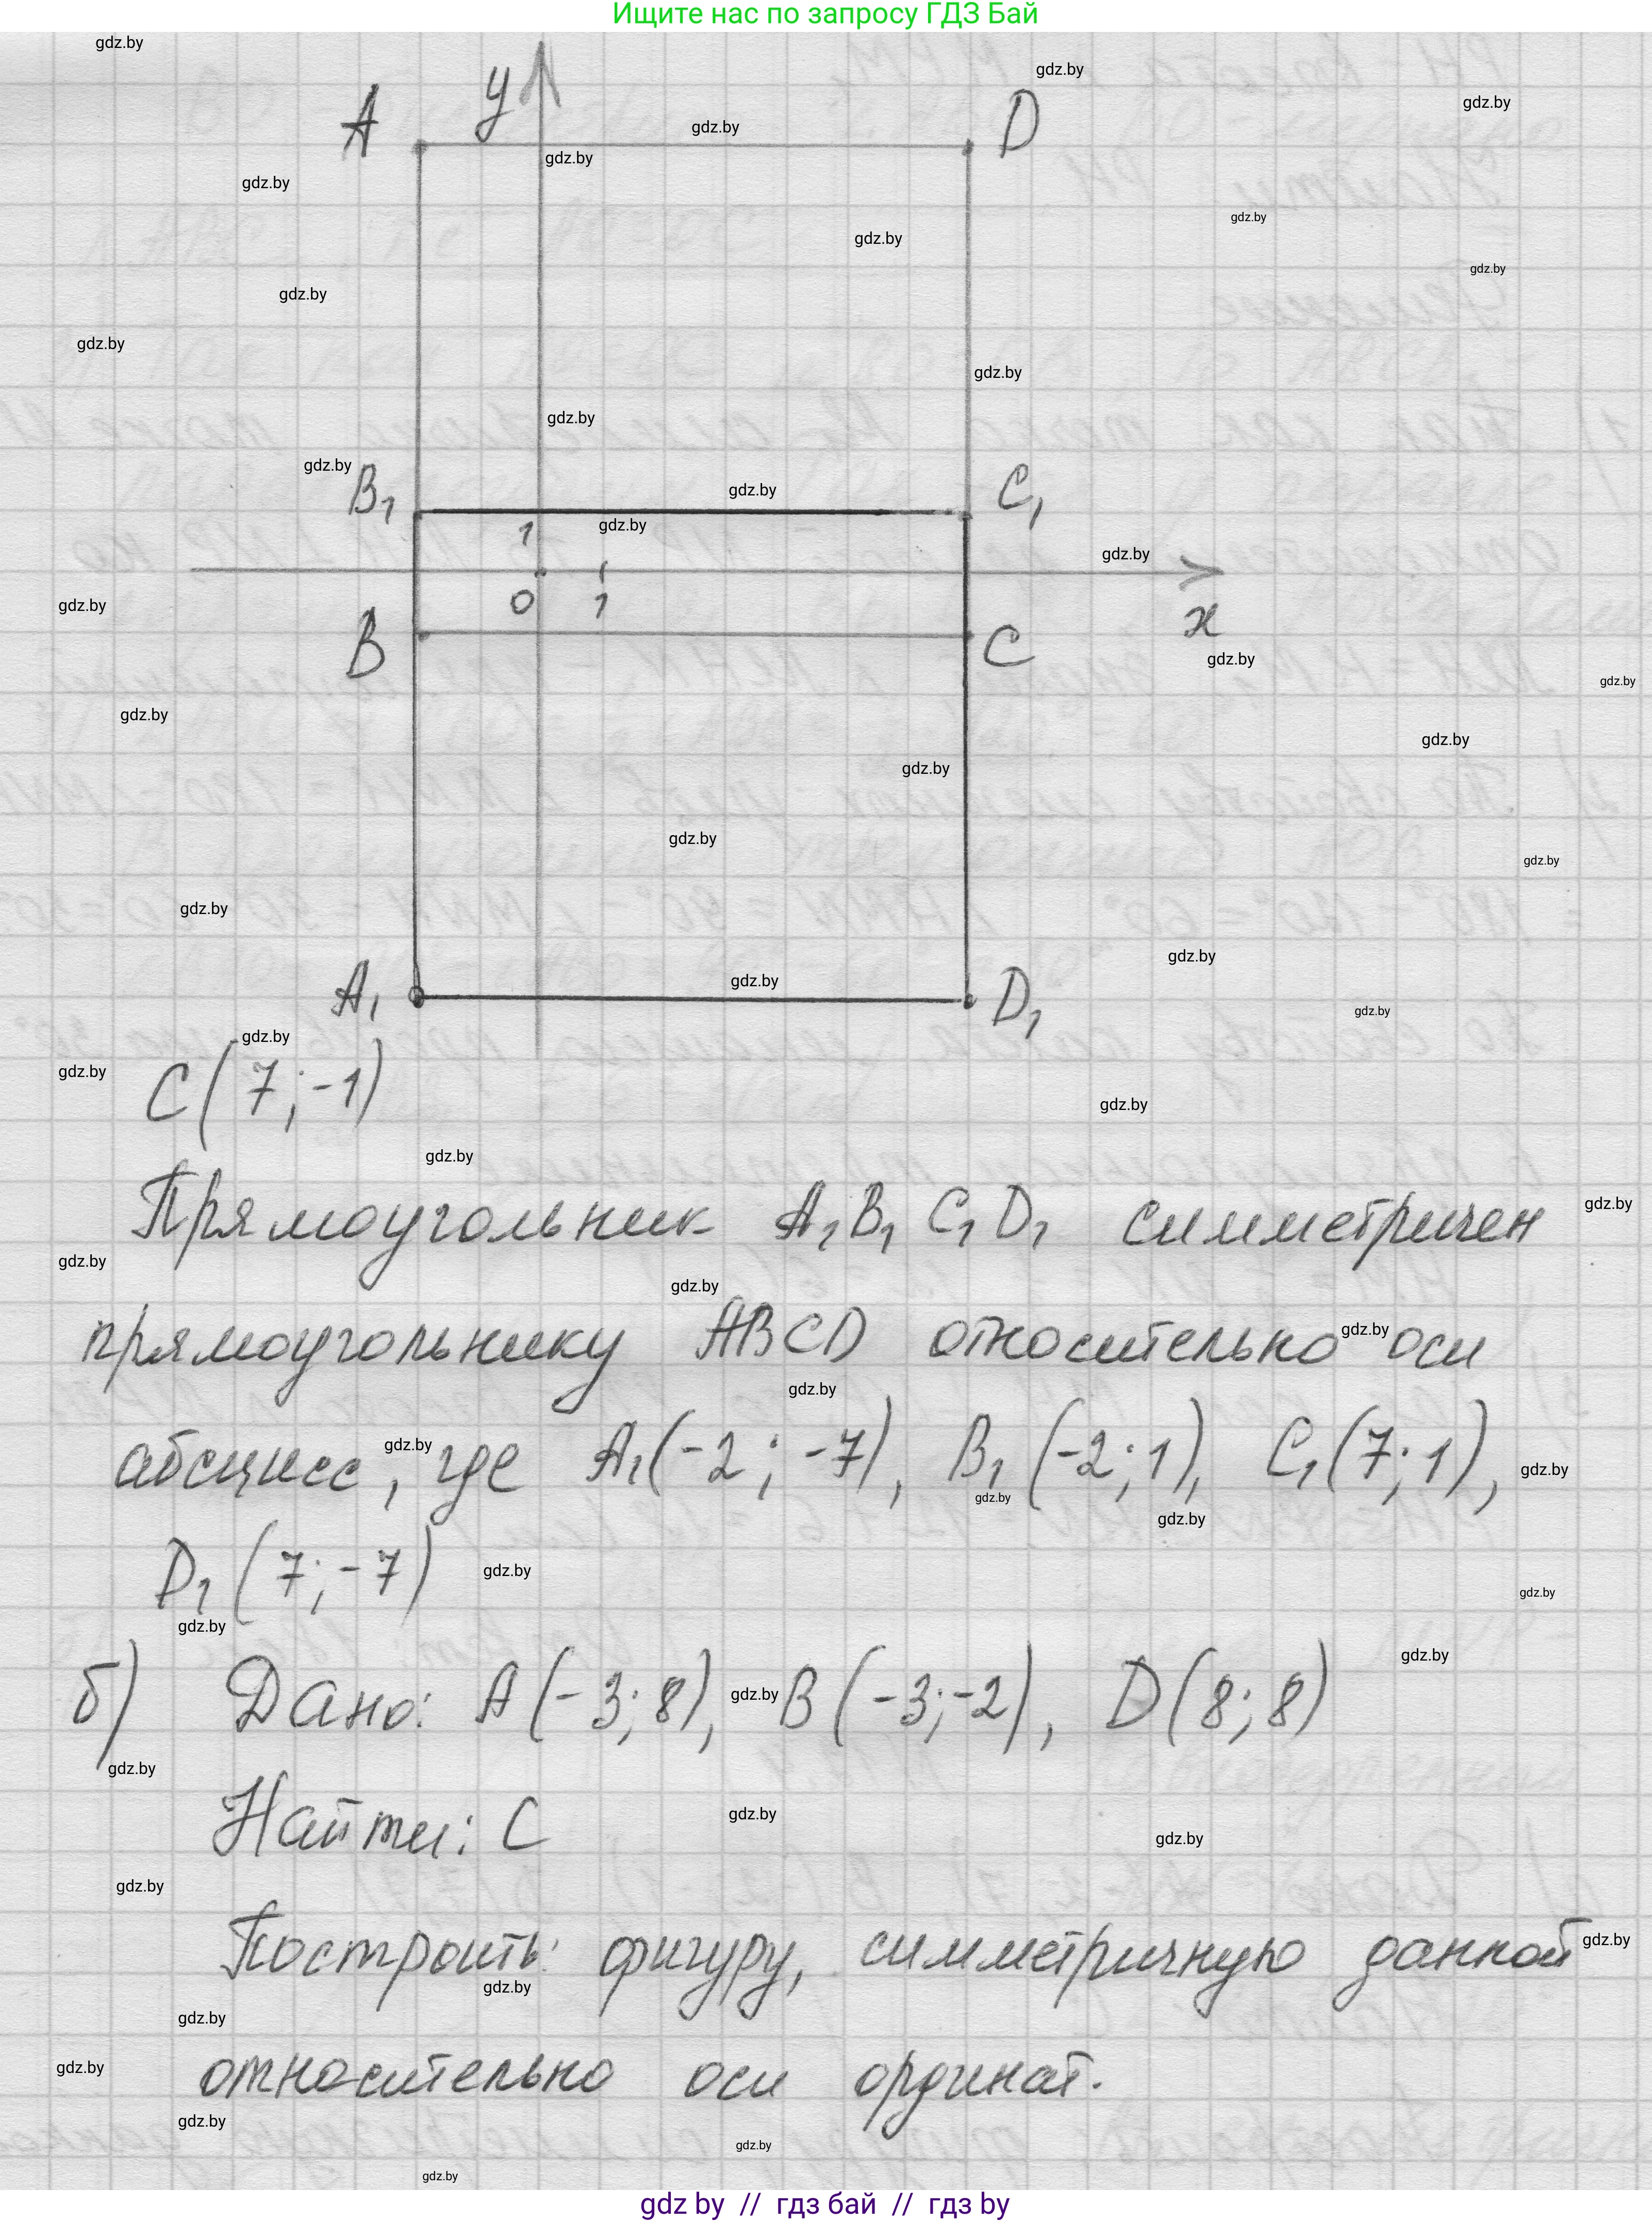 Ищите нас по запросу ГДЗ Бай
A y D
B₁ C₁
1
0 1 x
B C
A₁ D₁
C(7;-1)
Прямоугольник A₁B₁C₁D₁ симметричен
прямоугольнику ABCD относительно оси
абсцисс, где A₁(-2;-7), B₁(-2;1), C₁(7;1),
D₁(7;-7)
б) Дано: A(-3;8), B(-3;-2), D(8;8)
Найти: C
Построить: фигуру, симметричную данной
относительно оси ординат.
gdz.by
gdz by // гдз бай // гдз by